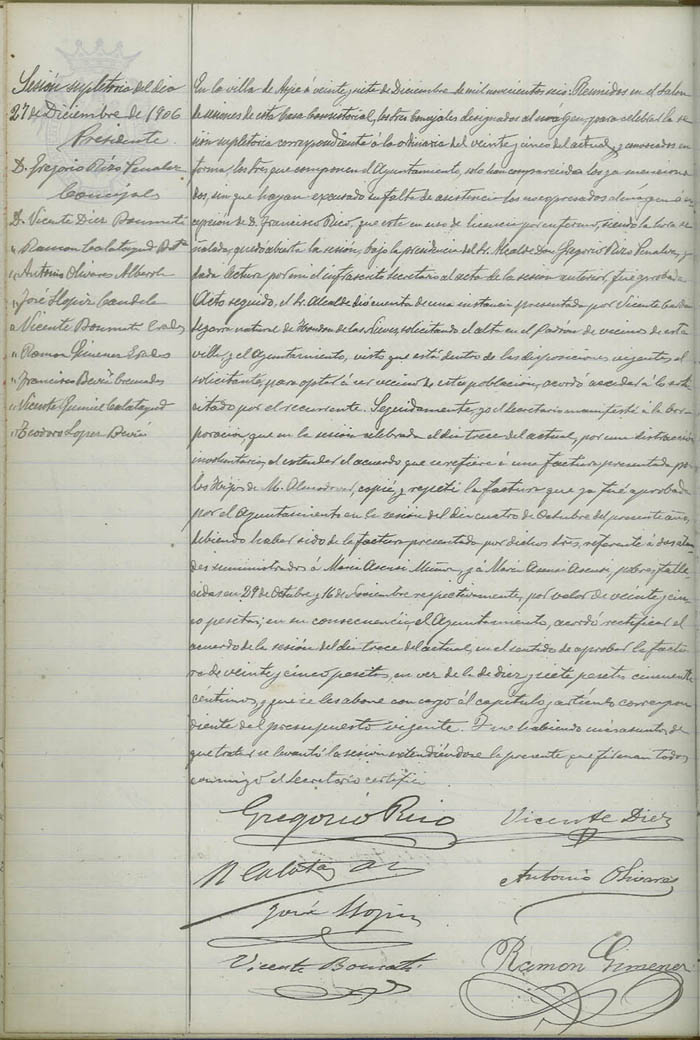 Sesión supletoria del dia
27 de Diciembre de 1906
Presidente
D. Gregorio Rizo Penalva
Concejales
D. Vicente Diez Bonmati
" Ramon Calatayud
" Antonio Olivares Alberola
" José Hopir Candela
" Vicente Bonmati
" Ramon Gimenez
" Francisco
" Vicente Calatayud
" Teodoro Lopez
En la villa de Aspe á veinte y siete de Diciembre de mil novecientos seis: Reunidos en el salon
de sesiones de esta Casa Consistorial, los tres Concejales designados al márgen, para celebrar la se-
sión supletoria correspondiente á la ordinaria del veinte y cinco del actual, y convocados en
forma, los tres que componen el Ayuntamiento, solo han comparecido los ya menciona-
dos, sin que hayan excusado su falta de asistencia los no expresados al márgen á ex-
cepción de D. Francisco Rico, que está en uso de licencia por enfermo, siendo la hora se-
ñalada, quedó abierta la sesión, bajo la presidencia del Sr. Alcalde Don Gregorio Rizo Penalva, y
dada lectura por mi el infrascrito secretario al acta de la sesión anterior, fué aprobada
Acto seguido, el Sr. Alcalde dió cuenta de una instancia presentada por Vicente
Segarra natural de Hondon de las Nieves, solicitando el alta en el Padrón de vecinos de esta
villa, y el Ayuntamiento, visto que está dentro de las disposiciones vigentes, el
solicitante, para optar á ser vecino de esta poblacion, acordó acceder á lo soli-
citado por el recurrente. Seguidamente, yo el Secretario manifesté á la Cor-
poración, que en la sesión celebrada el dia trece del actual, por una distracción
involuntaria, al estender el acuerdo que se refiere á una factura presentada por
los Hijos de M. Almodovar, copié y repetí la factura que ya fué aprobada
por el Ayuntamiento en la sesión del dia cuatro de Octubre del presente año,
debiendo haber sido de la factura presentada por dichos Sres, referente á dos atau-
des suministrados á Maria Asensi Muñoz, y á Maria Asensi Asensi, pobres, falle-
cidas en 29 de Octubre y 16 de Noviembre respectivamente, por valor de veinte y cin-
co pesetas; en su consecuencia, el Ayuntamiento, acordó rectificar el
acuerdo de la sesión del dia trece del actual, en el sentido de aprobar la factu-
ra de veinte y cinco pesetas, en vez de la de diez y siete pesetas cincuenta
céntimos, y que se les abone con cargo al capítulo y artículo correspon-
diente del presupuesto vigente. Y no habiendo mas asuntos de
que tratar se levantó la sesión estendiéndose la presente que firman todos
conmigo el Secretario certifico
Gregorio Rizo Vicente Diez
R Calatayud Antonio Olivares
José Hopir
Vicente Bonmati Ramon Gimenez